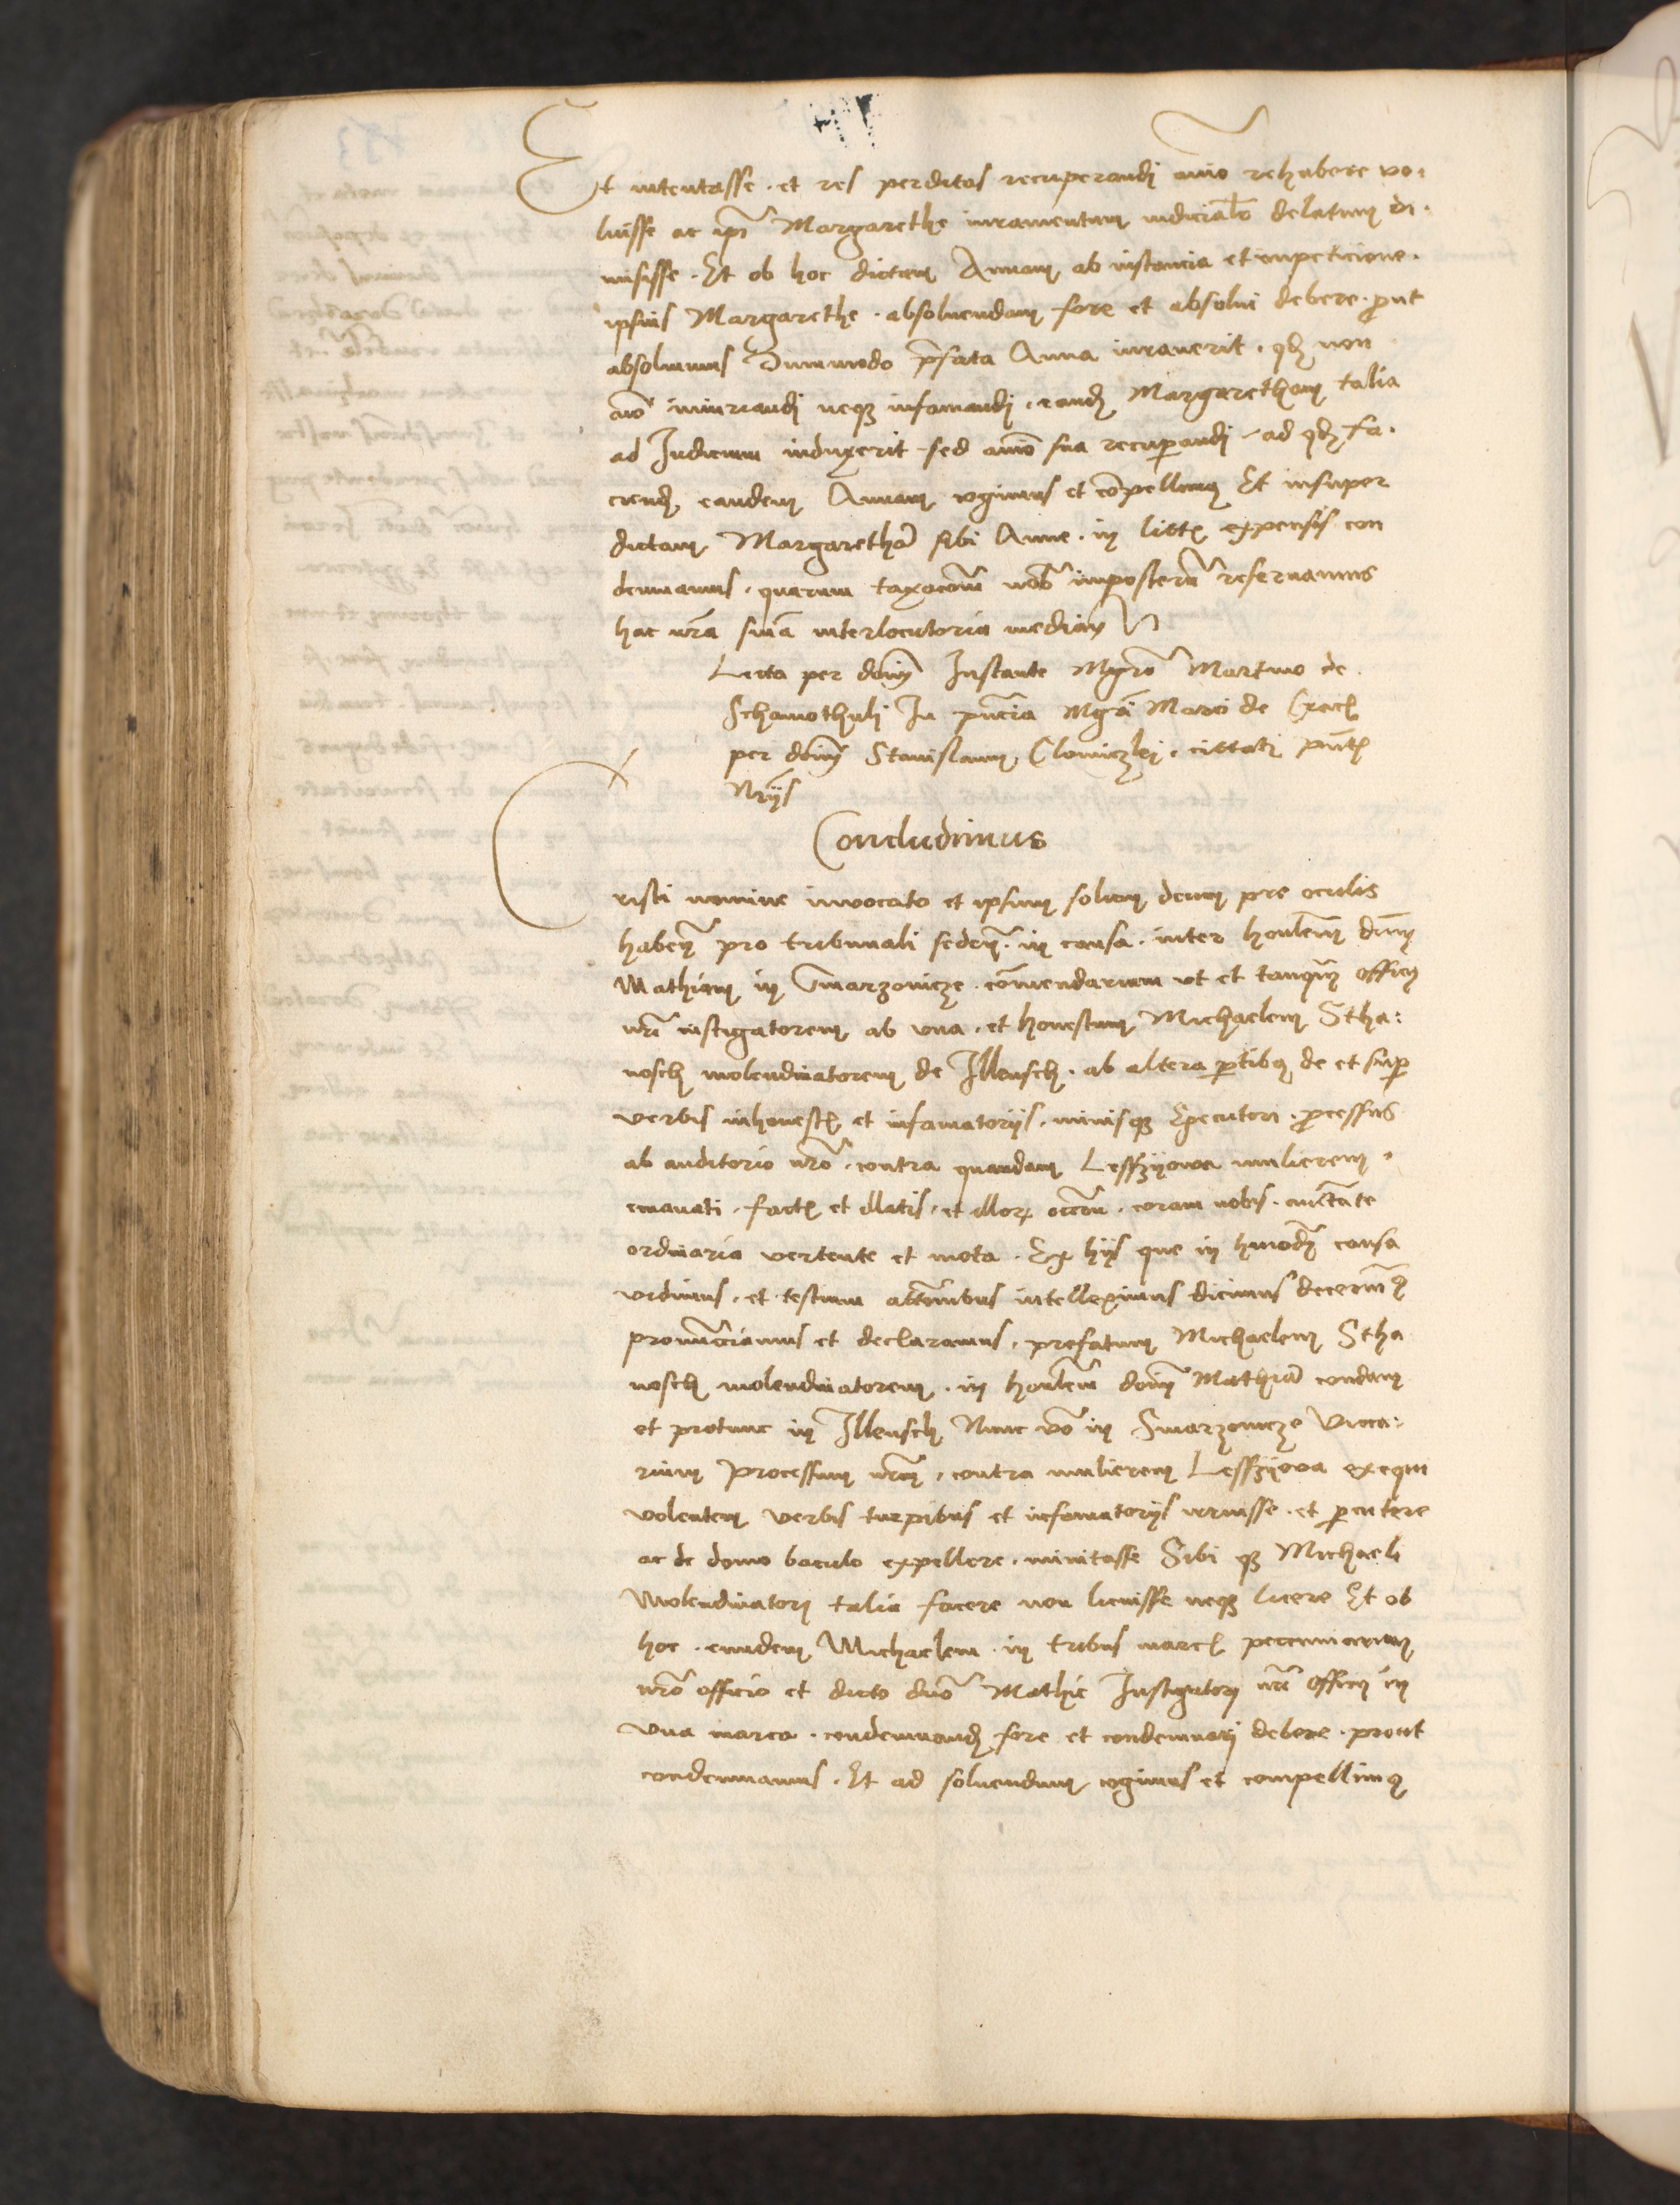 Et intentasse . et res perditas recuperandi aīo rehabere vo-
luisse ac ip̄i Margarethe iuramentum iudicial̄r delatum di-
misisse . Et ob hoc dictam Annam ab instancia et impeticione .
ipsius Margarethe . absoluendam fore et absolui debere . prout
absoluimus Dummodo p̄fata Anna iurauerit . qđ non
aīo iniuriandi neqꝫ infamandi . eandꝫ Margaretham talia
ad Iudicium induxerit sed aīo sua recuꝑandi ad qđ fa-
ciendꝫ eandem Annam cogimus et cōpellimꝰ Et insuper
dictam Margarethā sibi Anne . in littꝭ expensis con
demnamus . quarum taxacōem nob̄ imposterū reseruamus
hac nr̄a sn̄ia interlocutoria median̄
Lecta per dōm̄ Instante Mgrō Martino de
Schamothuli In pn̄cia Mgr̄i Marci de Cracꝭ
per dōm̄ Stanislaum Clowiczkj . cittati pn̄tꝭ
Nrijs
Concludimus
risti nomine inuocato et ipsum solum deum pre oculis
haben̄ pro tribunali seden̄ . in causa . inter honlem̄ dn̄m
Mathiam in Smarzowicze . cōmendarium vt et tanqꝫ officij
nr̄i instigatorem ab vna . et honestum Michaelem Stha-
nosch molendinatorem de Illensch . ab altera ꝑtibꝰ de et suꝑ
verbis inhonestꝭ et infamatorijs . minisqꝫ Executori . ꝓcessus
ab auditorio nr̄o . contra quandam Lesszijowa mulierem
emanati . factꝭ et illatis . et illoꝝ occōne . coram nobis . auctāte
ordinaria vertente et mota . Ex hijs que in hmōdi causa
vidimus . et testium attōnibus intelleximus dicimus decernimꝰ
pronūcciamus et declaramus . prefatum Michaelem Stha
nosch molendinatorem . in honlem̄ dōm̄ Mathiā condam
et protunc in Illensch Nunc vō in Smarzowicze Vica-
rium Processum nr̄m . contra mulierem Lesszijowa exequi
volentem verbis turpibus et infamatorijs irruisse . et ꝑcutere
ac de domo baculo expellere . minitasse Sibi qꝫ Michaeli
Molendinatori talia facere non licuisse neqꝫ licere Et ob
hoc . eundem Michaelem . in tribus marcꝭ pecuniarum
nr̄o officio et dicto dn̄o Mathie Instigatori nr̄i officij in
vna marca . condemnandꝫ fore et condemnari debere . prout
condemnamus . Et ad soluendum cogimus et compellimꝰ